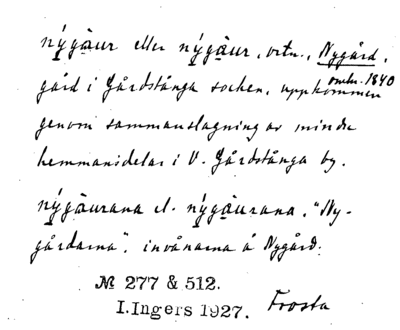 nýgäur eller nýgäur, ortn., Nygård,
gård i Gårdstånga socken, uppkommen
omkr. 1840
genom sammanslagning av mindre
hemmansdelar i V. Gårdstånga by.
nýgäurana el. nýgäurana, "Ny-
gårdarna", invånarna å Nygård.
№ 277 & 512.
I. Ingers 1927. Frosta